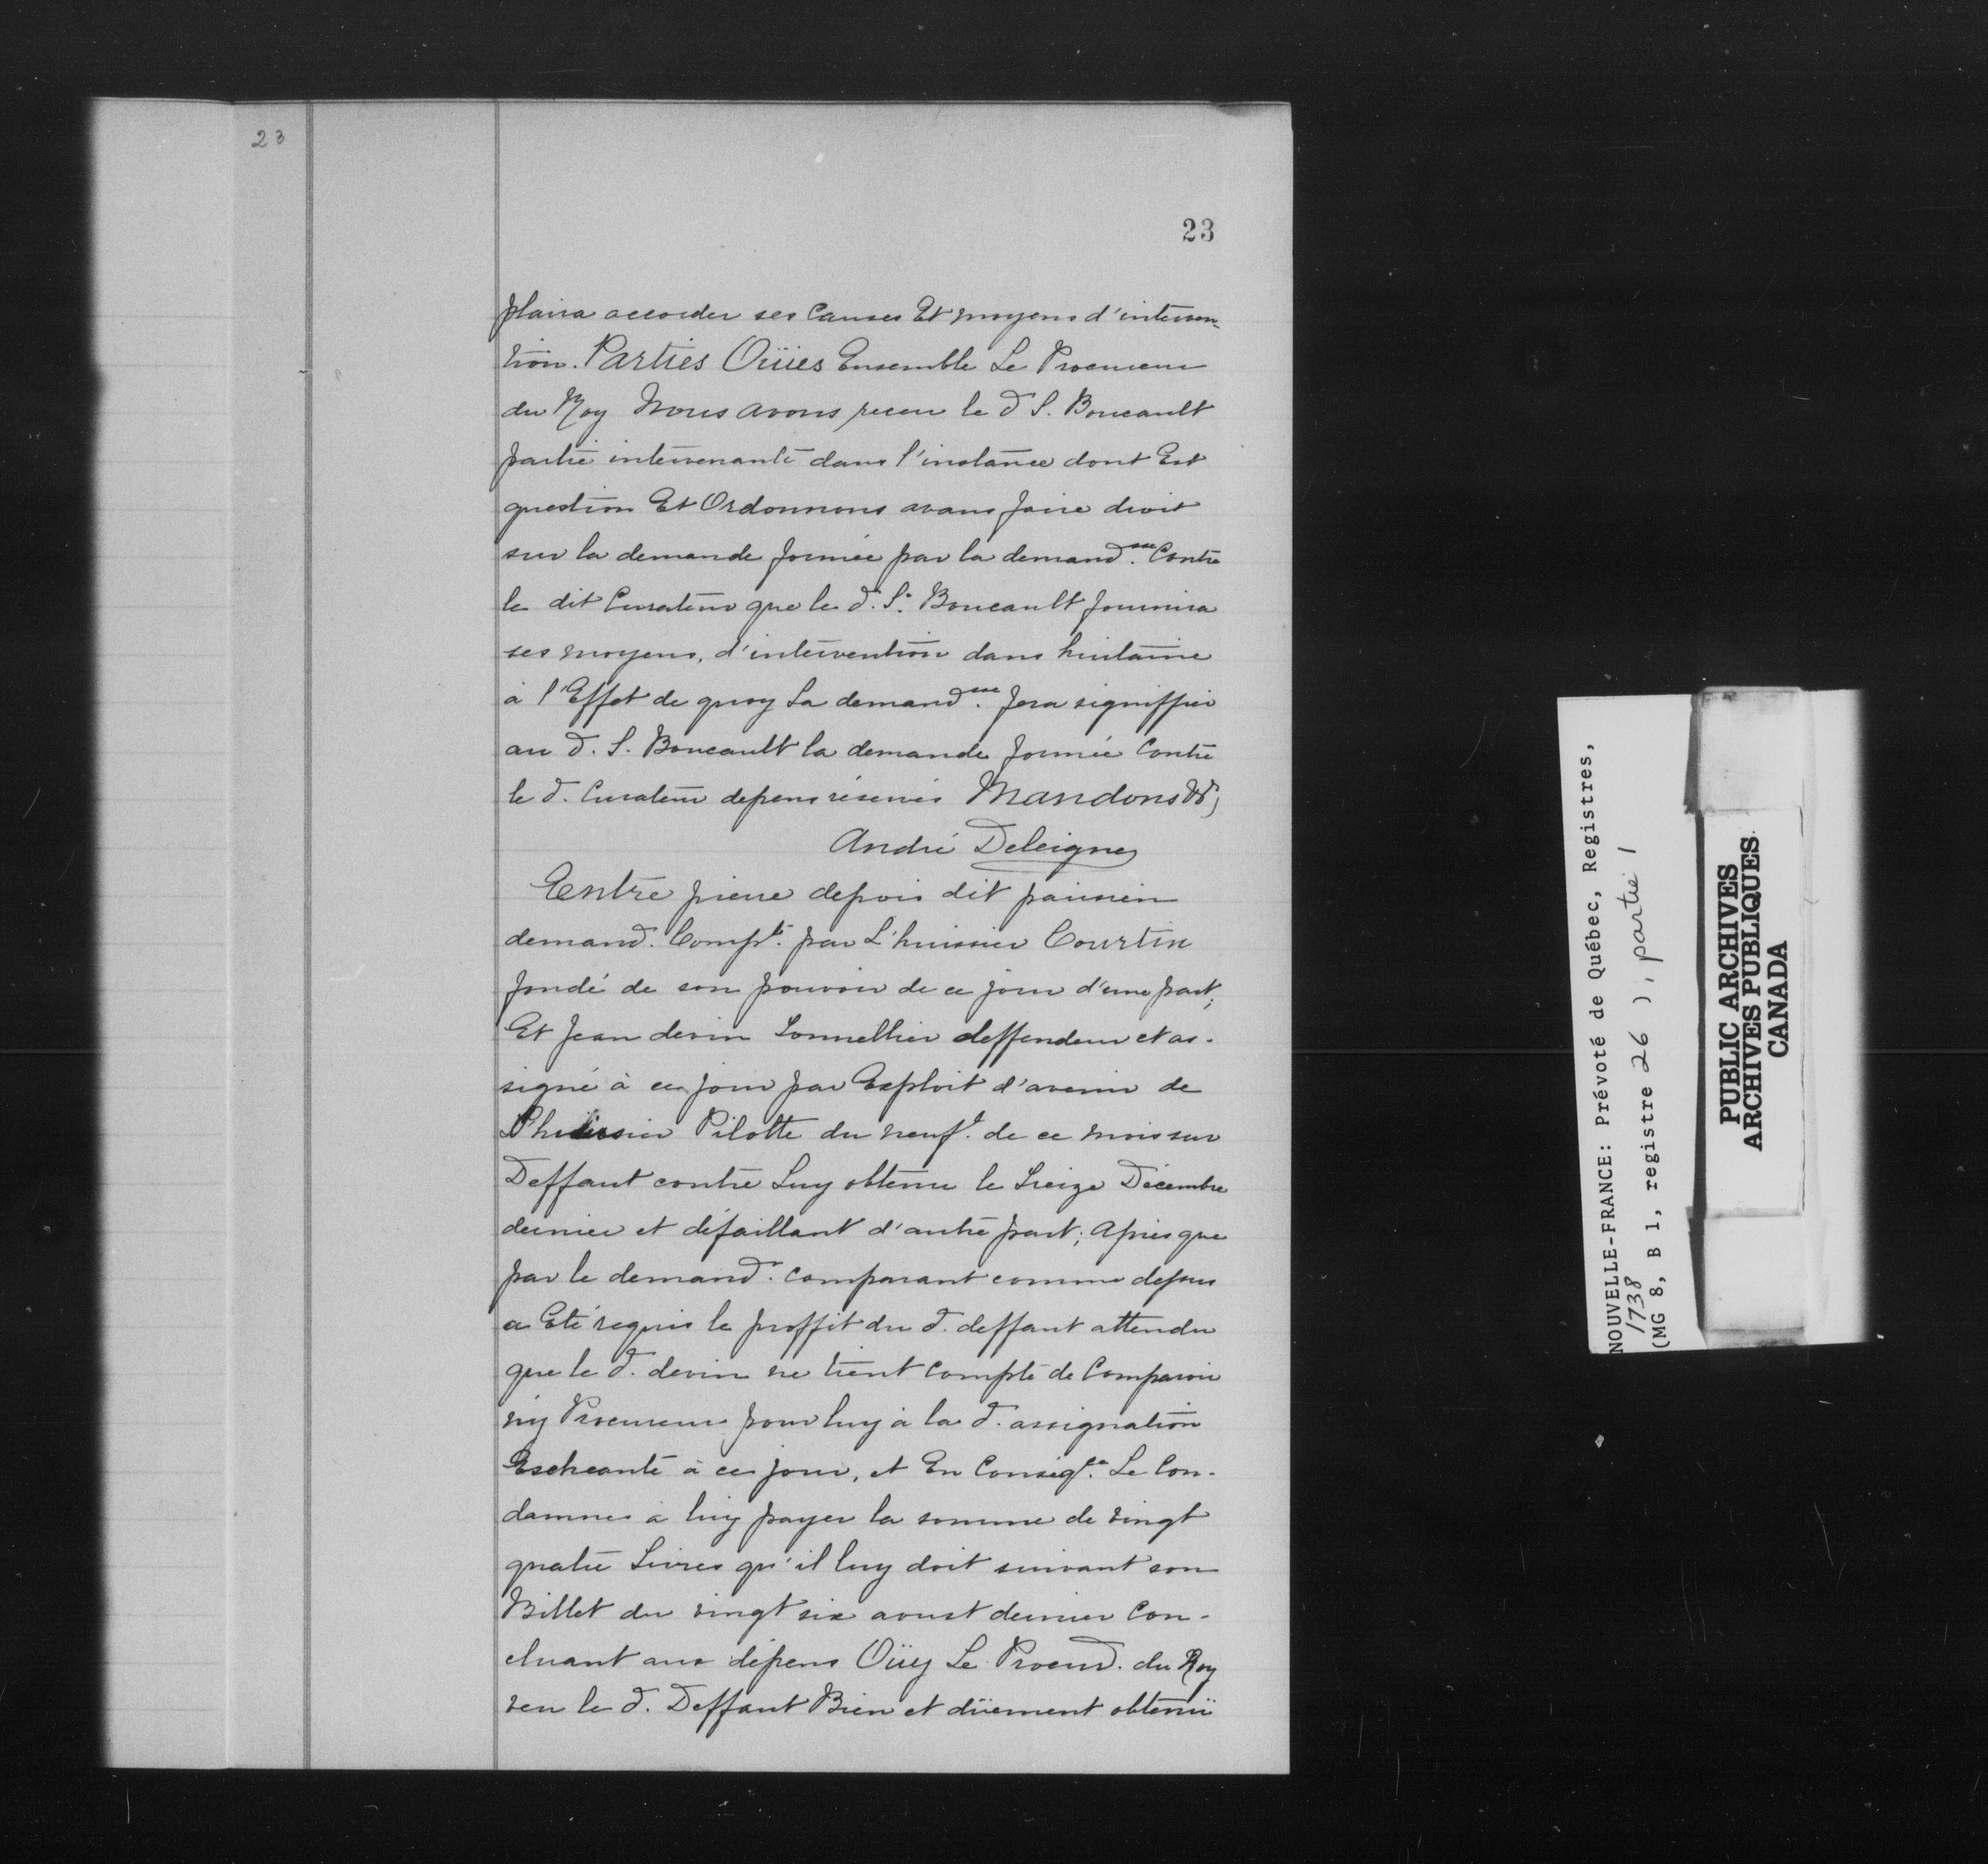 23
23
plaira accorder ses causes Et moyens d'interven-
tion. Parties Oüies Ensemble Le Procureur
du Roy Nous avons receu le d S. Boucault
partie intervenante dans l'instance dont Est
question Et Ordonnons avans faire droit
sur la demande formée par la demand.sse Contre
le dit Curateur que le d. S.r Boucault fournira
ses moyens, d'intervention dans huitaine
à l'Effet de quoy La demand.sse fera signiffier
au d. S. Boucault la demande formée Contre
le d. Curateur depens réservés Mandons &c
André Deleigne
Entre pierre depois dit parisien
demand. Comp.t par L'huissier Courtin
fondé de son pouvoir de ce jour d'une part;
Et Jean devin Tonnellier deffendeur et as-
signé à ce jour par Exploit d'avenir de
L'huissier Pilotte du neuf.e de ce mois sur
Deffaut contre Luy obtenu le Treize Décembre
dernier et défaillant d'autre part; Après que
par le demand.r comparant comme dessus
a Eté requis le proffit du d. deffaut attendu
que le d. devin ne tient compte de Comparoir
ny Procureur pour luy à la d. assignation
Escheante à ce jour, et En Conséq.ce Le Con-
damner à luy payer la somme de vingt
quatre Livres qu'il luy doit suivant son
Billet du vingt six aoust dernier Con-
cluant aux dépens Oüy Le Procur. du Roy
veu le d. Deffaut Bien et düement obtenü
NOUVELLE-FRANCE: Prévoté de Québec, Registres,
1738
(MG 8, B 1, registre 26 ), partie 1
PUBLIC ARCHIVES
ARCHIVES PUBLIQUES
CANADA